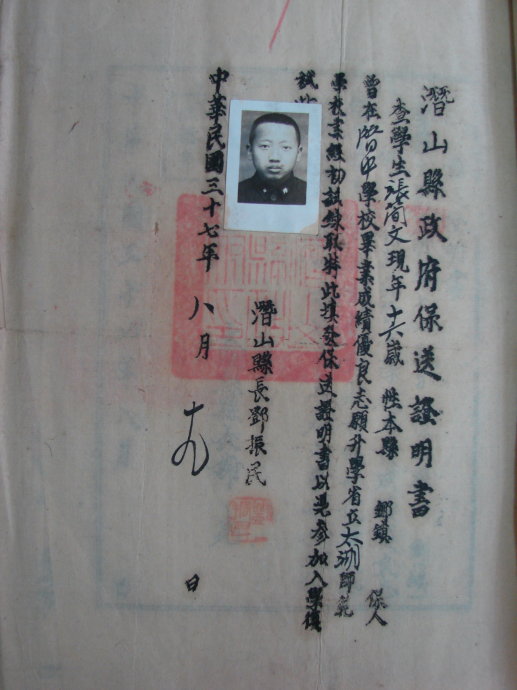 潛山縣政府保送證明書
查學生張簡文現年十六歲 性本縣 鄉鎮 保人
曾在 中學校畢業成績優良志願升學省立太湖師範
學校業經初試錄取將此填發保送證明書以憑參加入學復
試此
潛山縣長鄧振民
中華民國三十七年 八月 十九 日